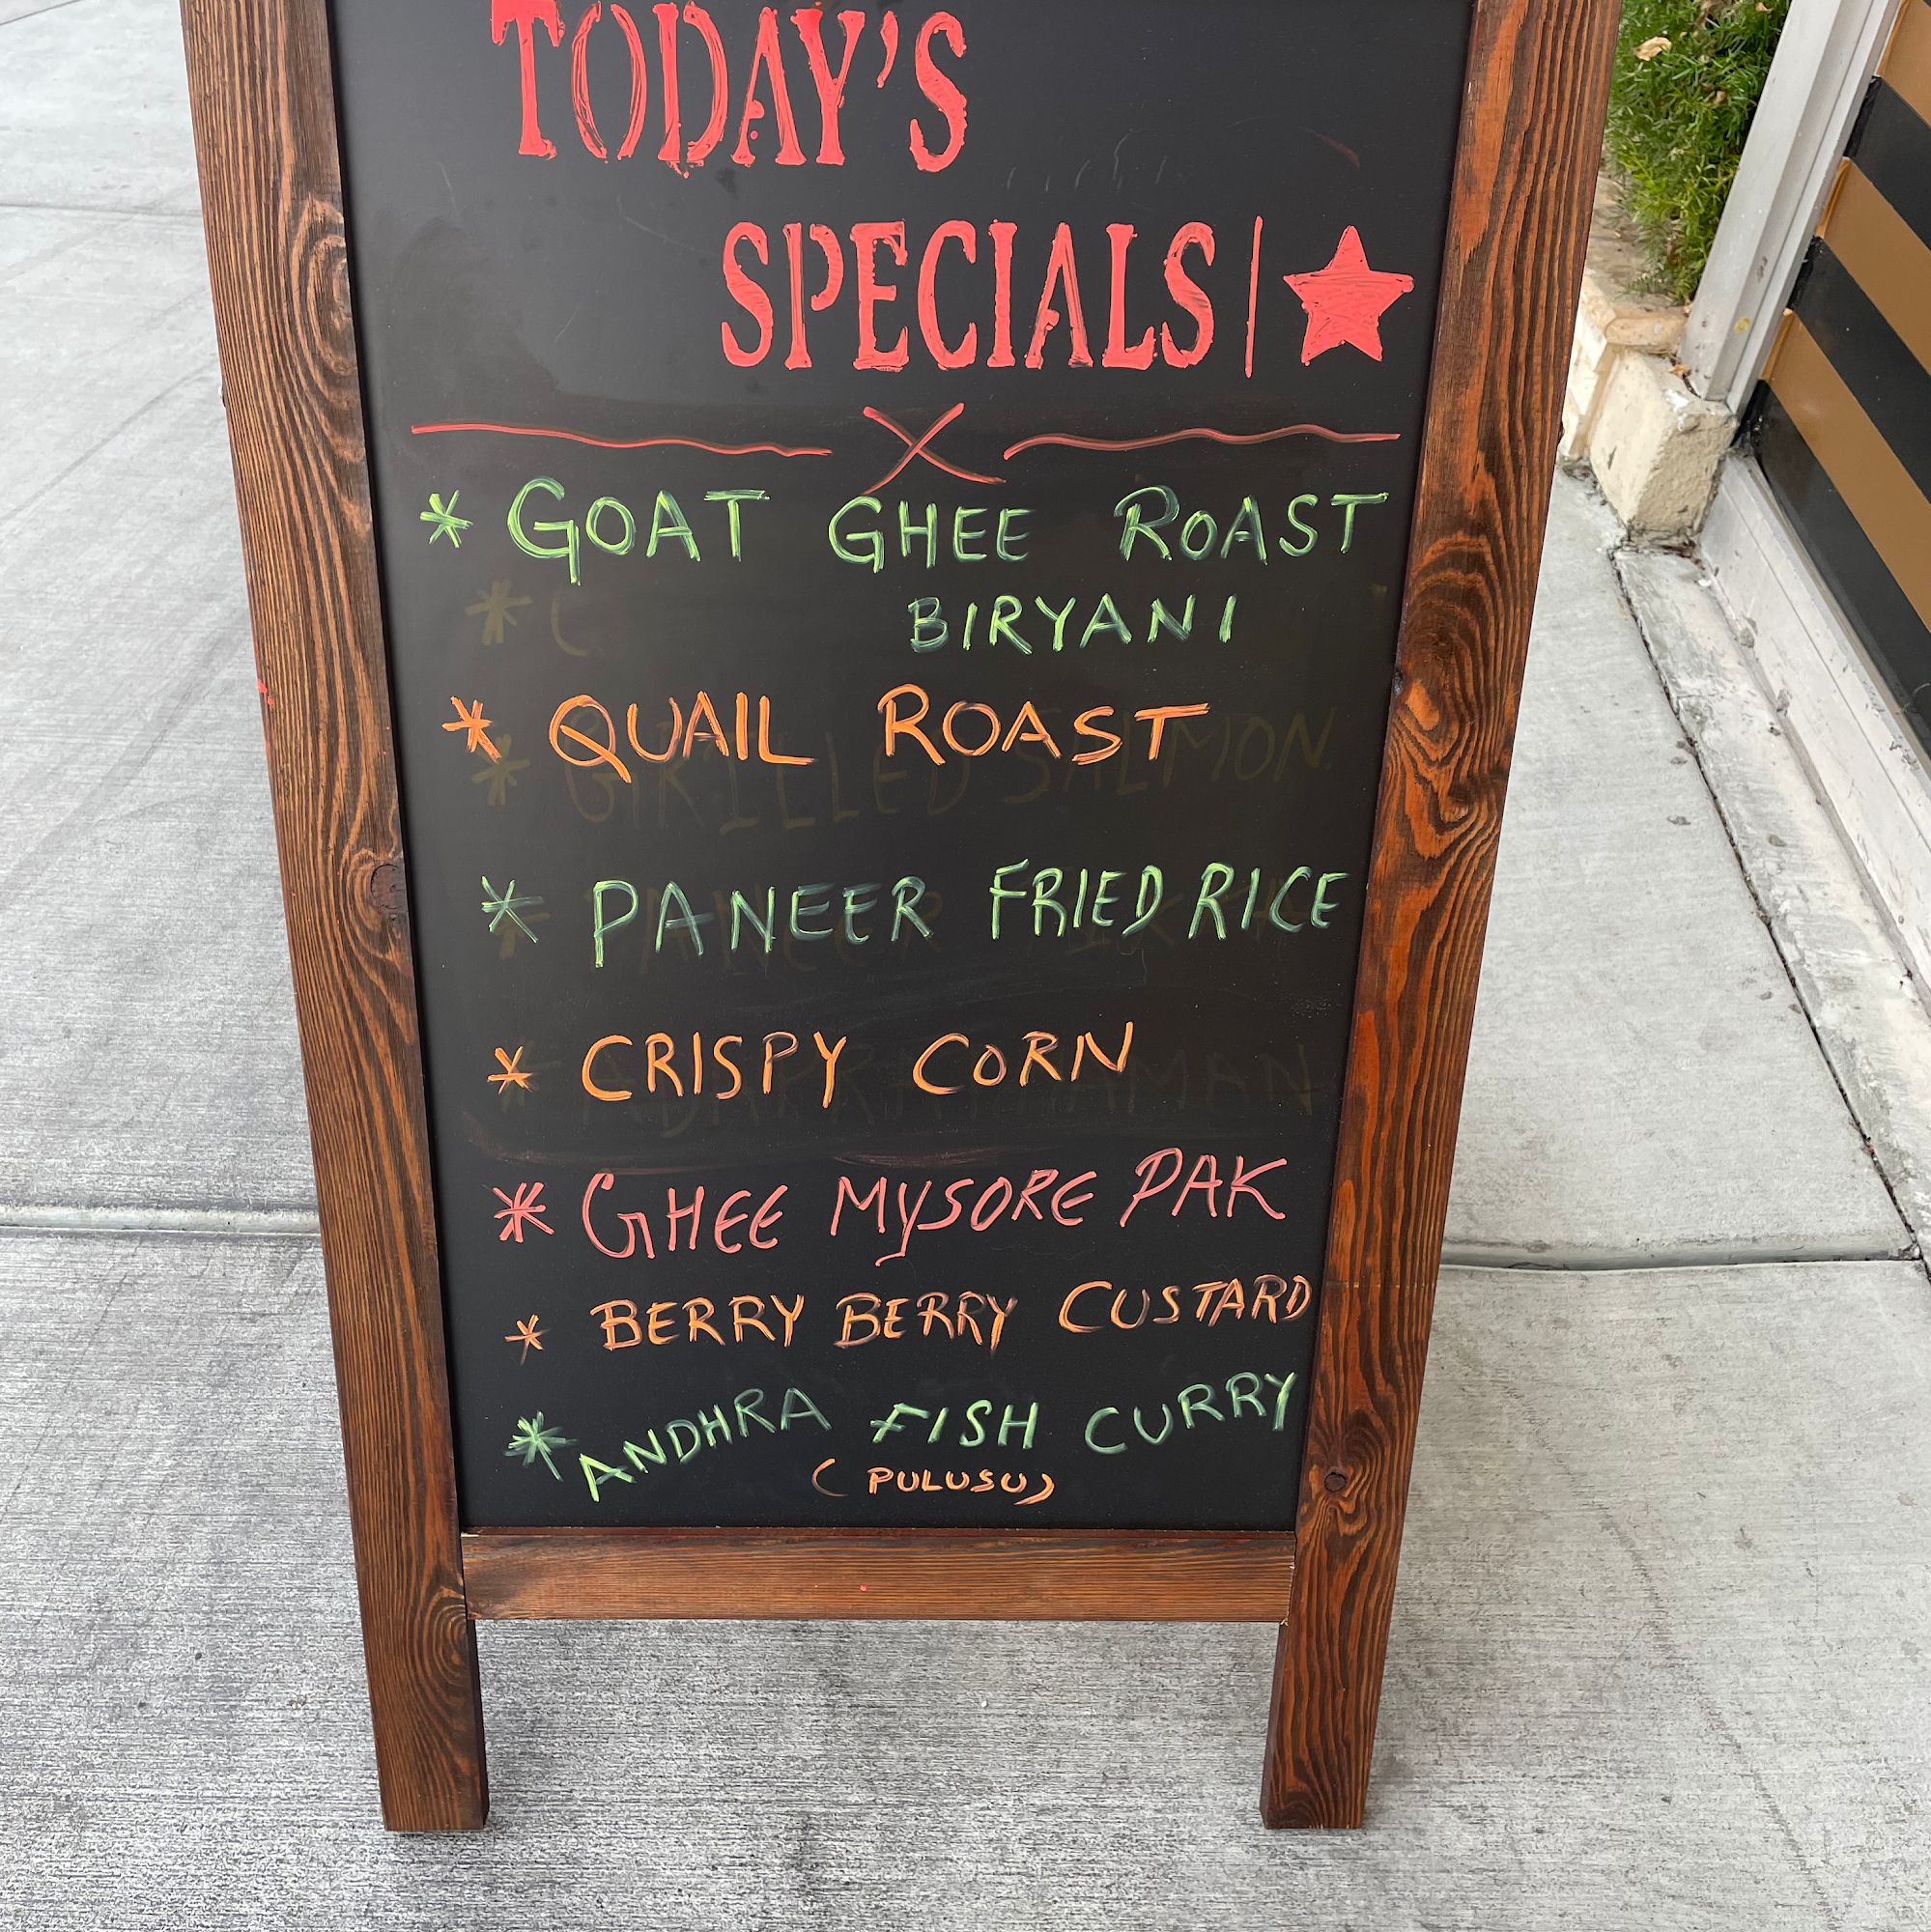 TODAY'S
SPECIALS
* GOAT GHEE ROAST
BIRYANI
* QUAIL ROAST
GRILLED SALMON
* PANEER FRIED RICE
* CRISPY CORN
* GHEE MYSORE PAK
* BERRY BERRY CUSTARD
* ANDHRA FISH CURRY
(PULUSU)